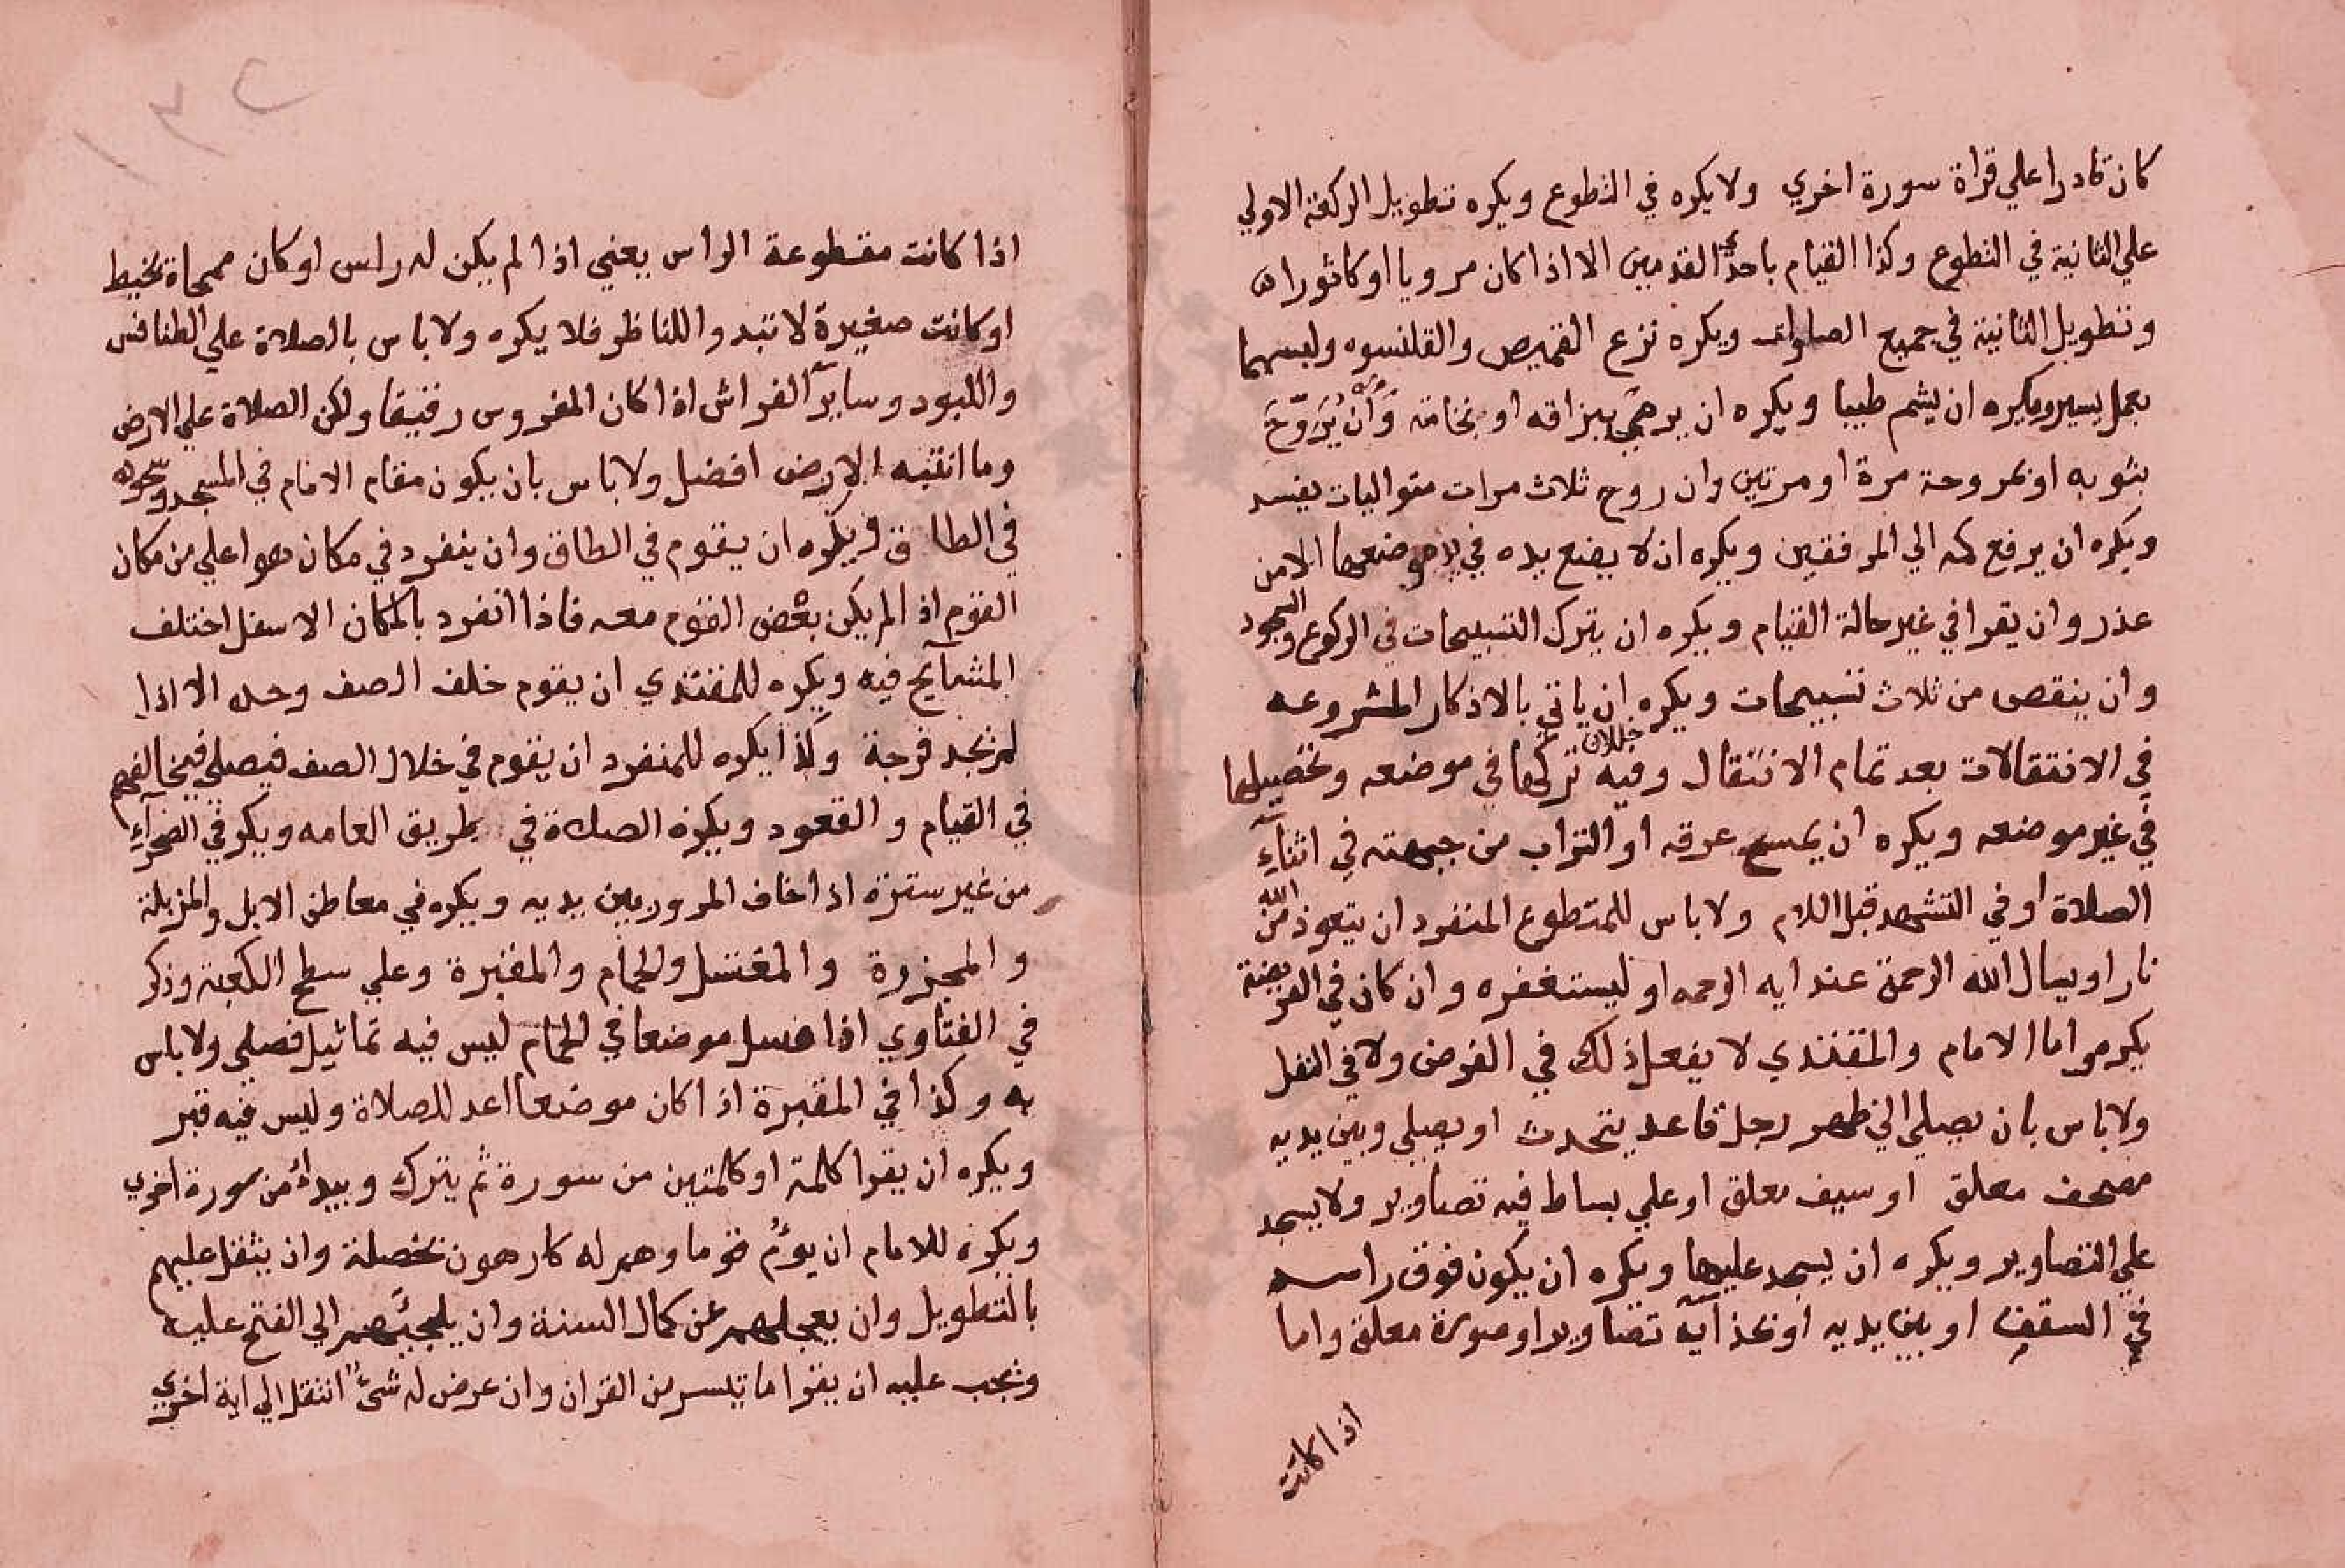 كان قادرا علي قراة سورة اخري ولا يكره في التطوع ويكره تطويل الركعة الاولي
علي الثانية في التطوع وكذا القيام باحدي القدمين الا اذا كان مرويا او كاثورا
وتطويل الثانية في جميع الصلوات ويكره نزع القميص والقلنسوه ولبسهما
بعمل يسير ويكره ان يشم طيبا ويكره ان يرمي ببزاقه او نخامته وَأَن يُرَوِّحَ
بثوبه او بمروحة مرة او مرتين وان روح ثلاث مرات متواليات يفسد
ويكره ان يرفع كمه الي المرفقين ويكره ان لا يضع يده في موضعها الا من
عذر وان يقرا في غير حالة القيام ويكره ان يترك التسبيحات في الركوع والسجود
وان ينقص من ثلاث تسبيحات ويكره ان ياتي بالاذكار المشروعه
في الانتقالات بعد تمام الانتقال وفيه خللان تركها في موضعه وتحصيلها
في غير موضعه ويكره ان يمسح عرقه او التراب من جبهته في اثناء
الصلاة او في التشهد قبل السلام ولا باس للمتطوع المنفرد ان يتعوذ من الله
نار او يسال الله الرحمة عند ايه الرحمه او ليستغفره وان كان في الفريضة
يكره واما الامام والمقتدي لا يفعل ذلك في الفرض ولا في النفل
ولا باس بان يصلي الي ظهر رجل قاعد يتحدث او يصلي وبين يديه
مصحف معلق او سيف معلق او علي بساط فيه تصاوير ولا يسجد
علي التصاوير ويكره ان يسجد عليها ويكره ان يكون فوق راسه
في السقف او بين يديه او بحذآيه تصاوير او صورة معلقة واما
اذا كانت
اذا كانت مقطوعة الراس يعني اذا لم يكن له راس او كان ممحاة بخيط
او كانت صغيرة لا تبدوا للناظر فلا يكره ولا باس بالصلاة علي الطنافس
واللبود وساير الفراش اذا كان المفروس رقيقا ولكن الصلاة علي الارض
وما انتبه الارض افضل ولا باس بان يكون مقام الامام في المسجد وسجوده
في الطاق ويكره ان يقوم في الطاق وان ينفرد في مكان هو اعلي من مكان
القوم اذ الم يكن بعض القوم معه فاذا انفرد بالمكان الاسفل اختلف
المشآيخ فيه ويكره للمقتدي ان يقوم خلف الصف وحده الا اذا
لم يجد فرجة وكذا يكره للمنفرد ان يقوم في خلال الصف فيصلي فيخالفهم
في القيام والقعود ويكره الصلاة في طريق العامه ويكره في الصحرآء
من غير سترة اذا خاف المرور بين يديه ويكره في معاطن الابل والمزبلة
والمجزرة والمغتسل والحمام والمقبرة وعلي سطح الكعبة وذكر
في الفتاوي اذا غسل موضعا في الحمام ليس فيه تماثيل فصلي ولا باس
به وكذا في المقبرة اذا كان موضعا اعد للصلاة وليس فيه قبر
ويكره ان يقرا كلمة او كلمتين من سورة ثم يترك ويبدأ من سورة اخري
ويكره للامام ان يؤم قوما وهم له كارهون بخصلة وان يثقل عليهم
بالتطويل وان يعجلهم عن كمال السنة وان يلجئهم الي الفتح عليه
ويجب عليه ان يقرا ما تيسر من القران وان عرض له شئ انتقل الي اية اخري